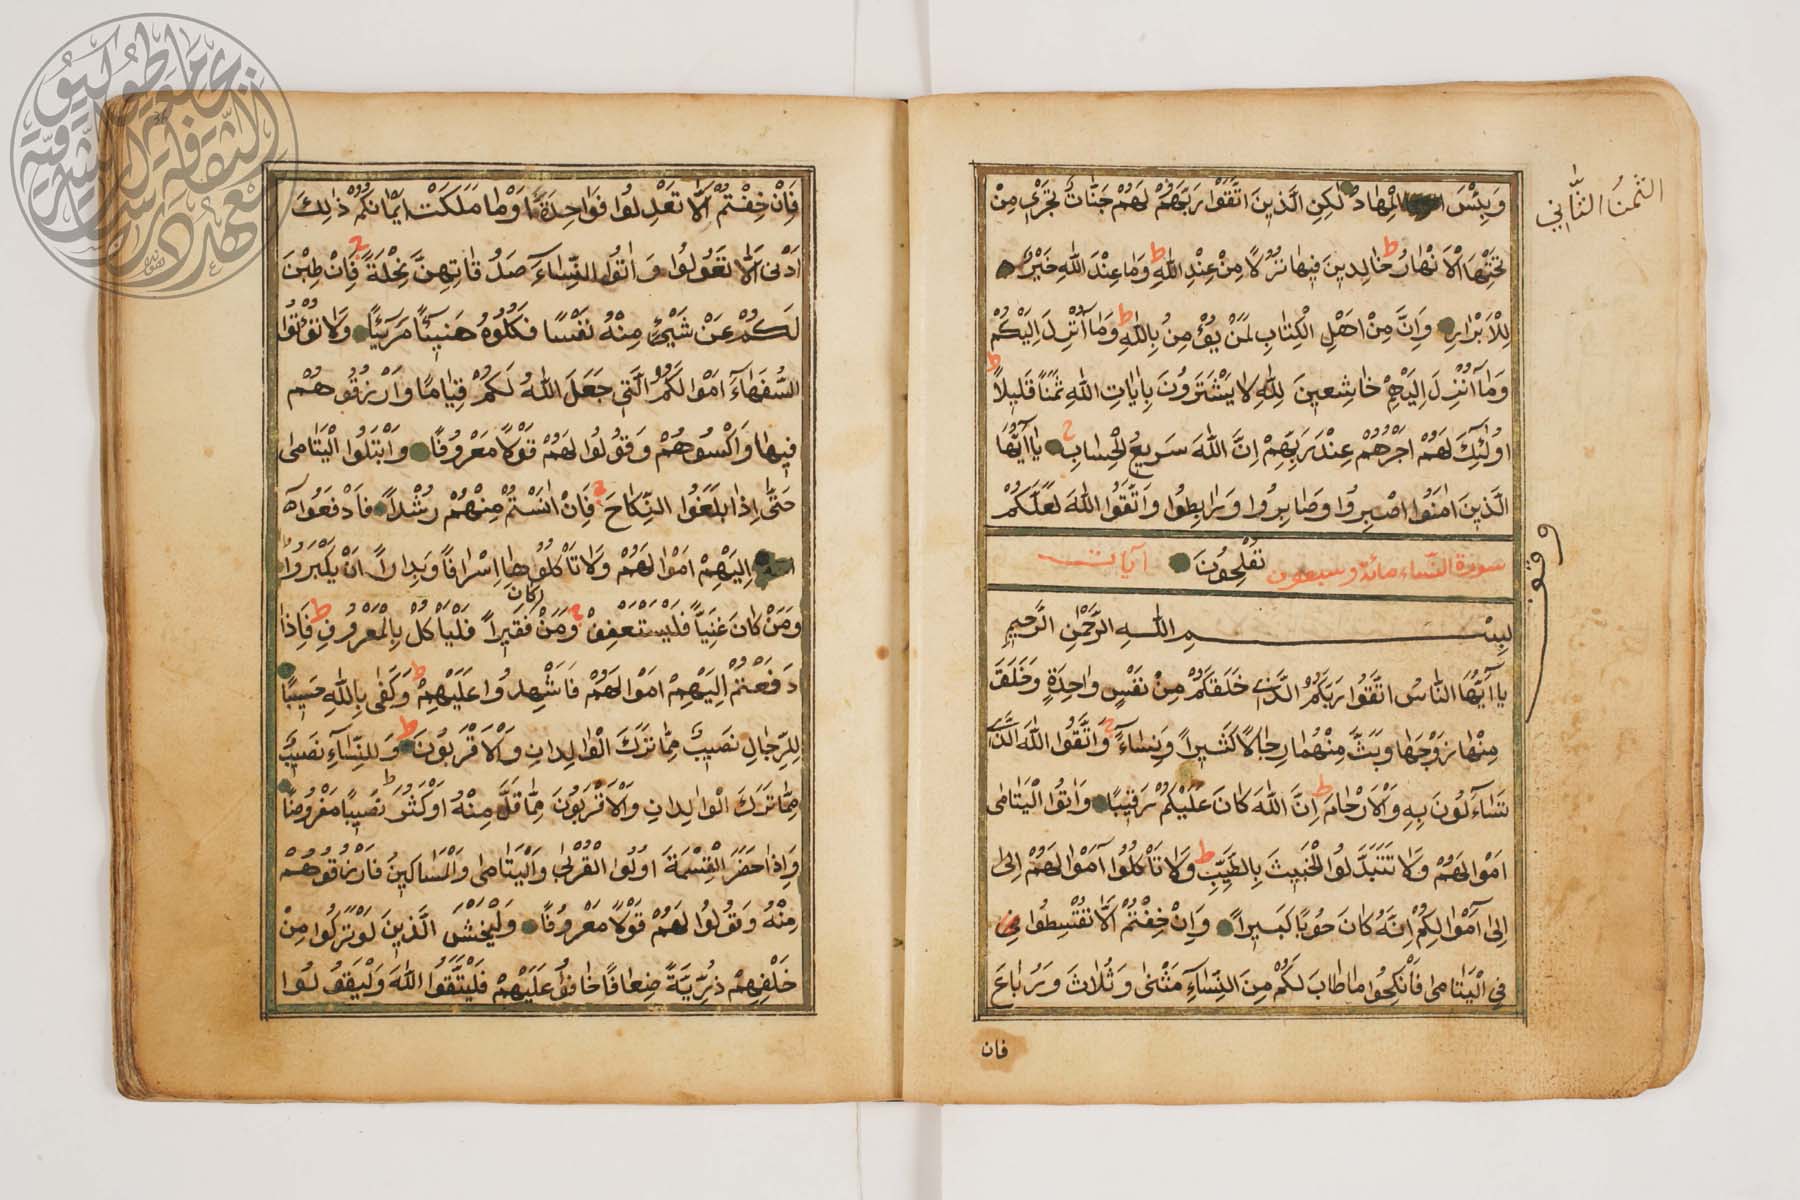 الثمن الثاني
وَبِئْسَ الْمِهَادُ لٰكِنِ الَّذِينَ اتَّقَوْا رَبَّهُمْ لَهُمْ جَنَّاتٌ تَجْرِي مِنْ
تَحْتِهَا الْاَنْهَارُ خَالِدِينَ فِيهَا نُزُلًا مِنْ عِنْدِ اللّٰهِ وَمَا عِنْدَ اللّٰهِ خَيْرٌ
لِلْاَبْرَارِ وَاِنَّ مِنْ اَهْلِ الْكِتَابِ لَمَنْ يُؤْمِنُ بِاللّٰهِ وَمَا اُنْزِلَ اِلَيْكُمْ
وَمَا اُنْزِلَ اِلَيْهِمْ خَاشِعِينَ لِلّٰهِ لَا يَشْتَرُونَ بِاٰيَاتِ اللّٰهِ ثَمَنًا قَلِيلًا
اُولٰئِكَ لَهُمْ اَجْرُهُمْ عِنْدَ رَبِّهِمْ اِنَّ اللّٰهَ سَرِيعُ الْحِسَابِ يَا اَيُّهَا
الَّذِينَ اٰمَنُوا اصْبِرُوا وَصَابِرُوا وَرَابِطُوا وَاتَّقُوا اللّٰهَ لَعَلَّكُمْ
تُفْلِحُونَ
سورة النساء مائة وسبعون آيات
بِسْمِ اللّٰهِ الرَّحْمٰنِ الرَّحِيمِ
يَا اَيُّهَا النَّاسُ اتَّقُوا رَبَّكُمُ الَّذِي خَلَقَكُمْ مِنْ نَفْسٍ وَاحِدَةٍ وَخَلَقَ
مِنْهَا زَوْجَهَا وَبَثَّ مِنْهُمَا رِجَالًا كَثِيرًا وَنِسَاءً وَاتَّقُوا اللّٰهَ الَّذِي
تَسَاءَلُونَ بِهِ وَالْاَرْحَامَ اِنَّ اللّٰهَ كَانَ عَلَيْكُمْ رَقِيبًا وَاٰتُوا الْيَتَامٰى
اَمْوَالَهُمْ وَلَا تَتَبَدَّلُوا الْخَبِيثَ بِالطَّيِّبِ وَلَا تَأْكُلُوا اَمْوَالَهُمْ اِلٰى
اِلٰى اَمْوَالِكُمْ اِنَّهُ كَانَ حُوبًا كَبِيرًا وَاِنْ خِفْتُمْ اَلَّا تُقْسِطُوا فِي
فِي الْيَتَامٰى فَانْكِحُوا مَا طَابَ لَكُمْ مِنَ النِّسَاءِ مَثْنٰى وَثُلَاثَ وَرُبَاعَ
فان
فَاِنْ خِفْتُمْ اَلَّا تَعْدِلُوا فَوَاحِدَةً اَوْ مَا مَلَكَتْ اَيْمَانُكُمْ ذٰلِكَ
اَدْنٰى اَلَّا تَعُولُوا وَاٰتُوا النِّسَاءَ صَدُقَاتِهِنَّ نِحْلَةً فَاِنْ طِبْنَ
لَكُمْ عَنْ شَيْءٍ مِنْهُ نَفْسًا فَكُلُوهُ هَنِيئًا مَرِيئًا وَلَا تُؤْتُوا
السُّفَهَاءَ اَمْوَالَكُمُ الَّتِي جَعَلَ اللّٰهُ لَكُمْ قِيَامًا وَارْزُقُوهُمْ
فِيهَا وَاكْسُوهُمْ وَقُولُوا لَهُمْ قَوْلًا مَعْرُوفًا وَابْتَلُوا الْيَتَامٰى
حَتّٰى اِذَا بَلَغُوا النِّكَاحَ فَاِنْ اٰنَسْتُمْ مِنْهُمْ رُشْدًا فَادْفَعُوا
اِلَيْهِمْ اَمْوَالَهُمْ وَلَا تَأْكُلُوهَا اِسْرَافًا وَبِدَارًا اَنْ يَكْبَرُوا
وَمَنْ كَانَ غَنِيًّا فَلْيَسْتَعْفِفْ وَمَنْ كان فَقِيرًا فَلْيَأْكُلْ بِالْمَعْرُوفِ فَاِذَا
دَفَعْتُمْ اِلَيْهِمْ اَمْوَالَهُمْ فَاَشْهِدُوا عَلَيْهِمْ وَكَفٰى بِاللّٰهِ حَسِيبًا
لِلرِّجَالِ نَصِيبٌ مِمَّا تَرَكَ الْوَالِدَانِ وَالْاَقْرَبُونَ وَلِلنِّسَاءِ نَصِيبٌ
مِمَّا تَرَكَ الْوَالِدَانِ وَالْاَقْرَبُونَ مِمَّا قَلَّ مِنْهُ اَوْ كَثُرَ نَصِيبًا مَفْرُوضًا
وَاِذَا حَضَرَ الْقِسْمَةَ اُولُوا الْقُرْبٰى وَالْيَتَامٰى وَالْمَسَاكِينُ فَارْزُقُوهُمْ
مِنْهُ وَقُولُوا لَهُمْ قَوْلًا مَعْرُوفًا وَلْيَخْشَ الَّذِينَ لَوْ تَرَكُوا مِنْ
خَلْفِهِمْ ذُرِّيَّةً ضِعَافًا خَافُوا عَلَيْهِمْ فَلْيَتَّقُوا اللّٰهَ وَلْيَقُولُوا